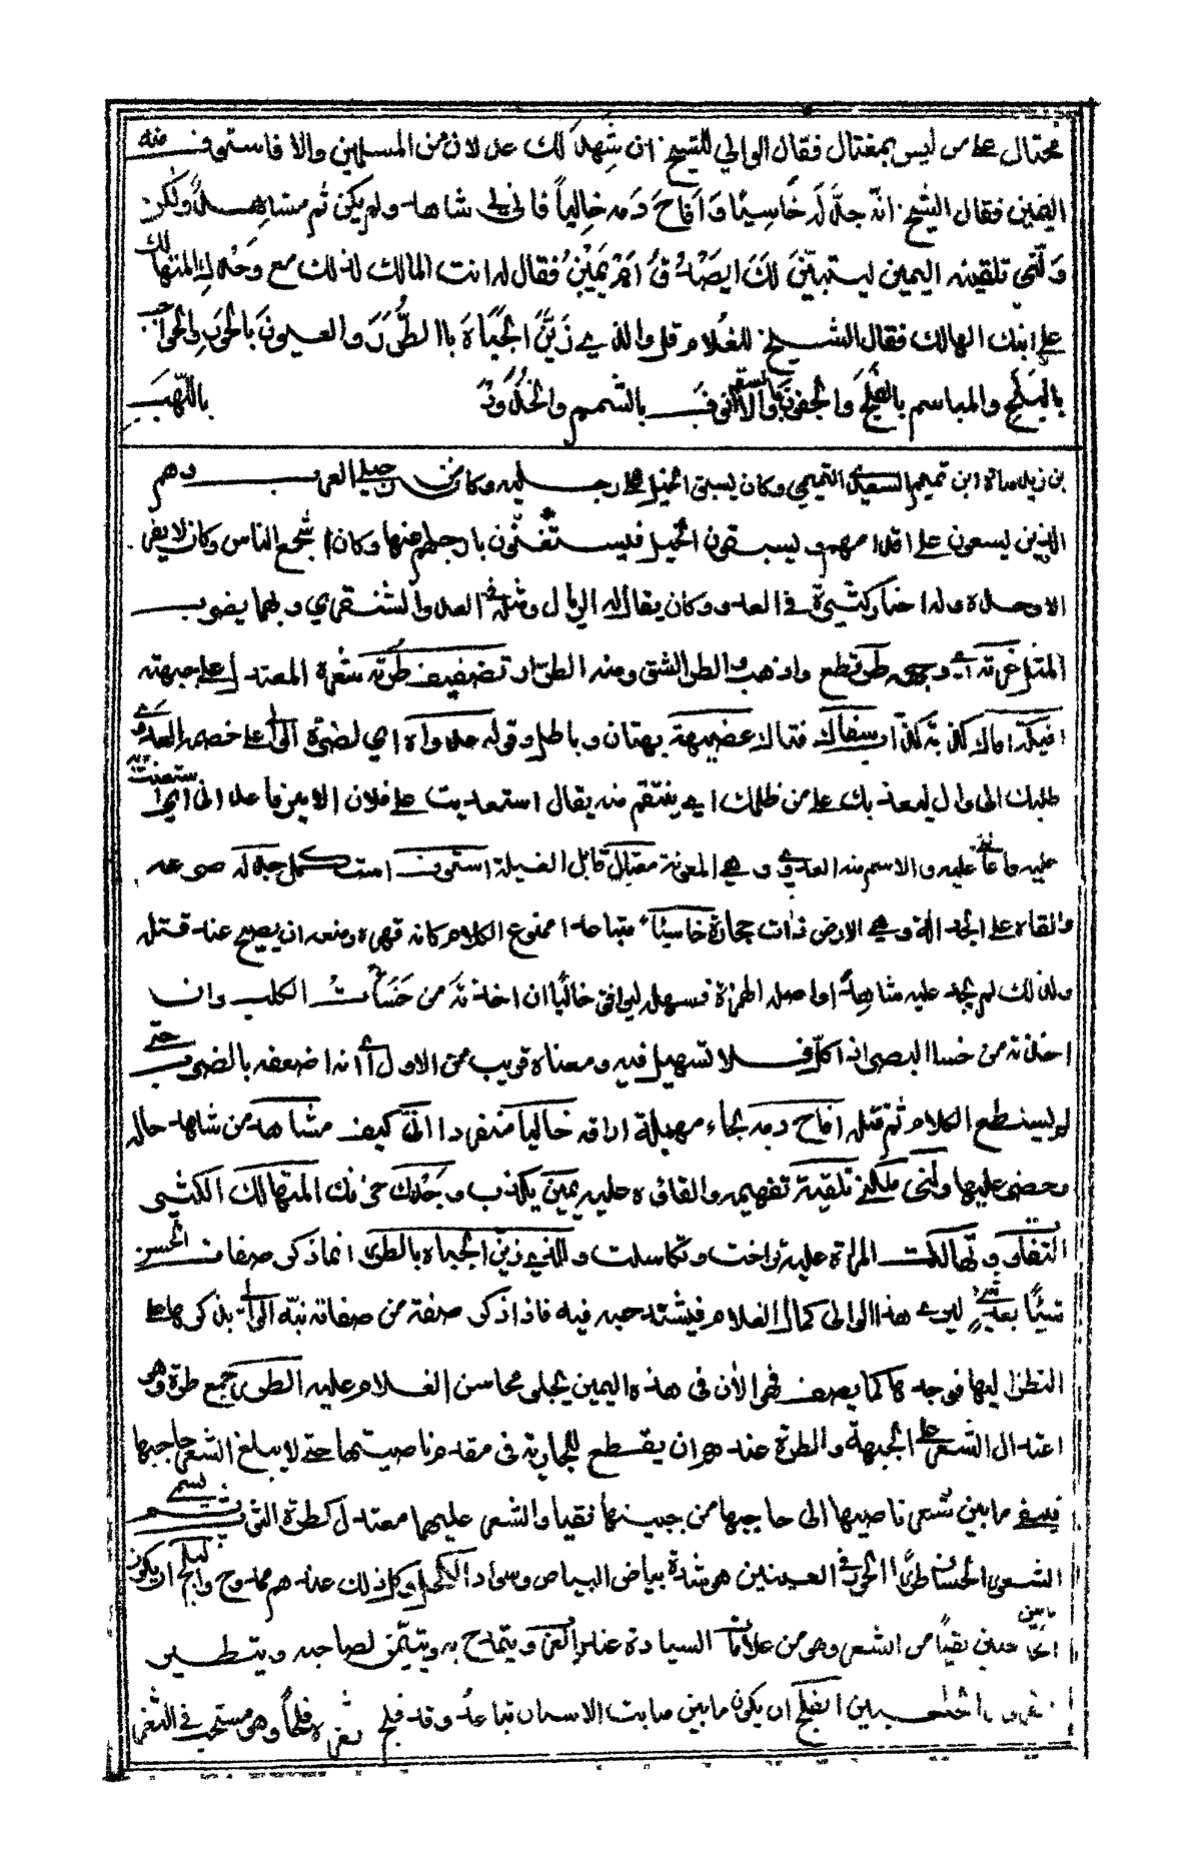 محتال على من ليس بمغتال فقال الوالي للشيخ ان شهد لك عدلان من المسلمين والا فاستوف منه
اليمين فقال الشيخ انه جدله خاسيًا وافاح دمه خالياً فانى لي شاهد ولم يكن ثم مشاهد ولكن
ولّني تلقينه اليمين ليتبيّن لك ايصدق ام يمين فقال له انت المالك لذلك مع وجدك المتهالك
على ابنك الهالك فقال الشيخ للغلام قل والذي زيّن الجباه بالطرر والعيون بالحور والحواجب
بالبلج والمباسم بالفلج والجفون بالسقم والانوف بالشمم والخدود باللهب
بن زيد مناة ابن تميم السعدي التميمي وكان يسبق الخيل على رجليه وكان من رجيلي العرب وهم
الذين يسعون على اقدامهم ويسبقون الخيل فيستغنون بارجلهم عنها وكان اشجع الناس وكان لا يغير
الا وحده وله اخبار كثيرة في العدو وكان يقال له الريبال ومثله في العدو الشنفرى وبهما يضرب
المثل طرته اي وجهه طر قطع واذهب والطر الشق ومنه الطرار تصفيف طرته شعره المعتدل على جبهته
افيكة افاك كذبة كذاب سفاك قتال عضيهة بهتان وباطل وقوله عدواه اي لضرة الوالي على خصمه العدوى
طلبك الى وال ليعديك على من ظلمك اي ينتقم منه يقال استعديت على فلان الامير فاعداني اي استعنت به
عليه فاعانني عليه والاسم منه العدوى وهي المعونة استوف استكمل جدله صرعه
والقاه على الجدالة وهي الارض ذات حجارة خاسيًا متباعدا ممنوع الكلام كانه قهره ومنعه ان يصيح عند قتله
ولذلك لم يجد عليه مشاهداً او اصله الهمزة فسهل ليوافق خالياً ان اخذته من خسأت الكلب وان
اخذته من خسا البصر اذا كلّ فلا تسهيل فيه ومعناه قريب من الاول اي انه اضعفه بالضرب حتى
لم يستطع الكلام ثم قتله افاح دمه بحاء مهملة اراقه خاليا منفردا انّى كيف مشاهد من شاهد حاله
وحضر عليها ولّني ملّكني تلقينه تفهيمه والقاؤه عليه يمين يكذب وجدك حزنك المتهالك الكثير
وتهالكت المرأة عليه تراخت وتكاسلت والذي زيّن الجباه بالطرر انما ذكر صفات الحسن
شيئًا بعد شيء ليرى هذا الوالي كمال الغلام فيشتد حبه فيه فاذا ذكر صفة من صفاته نبّه الوالي بذكرها على
النظر اليها فوجدها كما يصف فهو الأن في هذه اليمين يجلى محاسن الغلام عليه الطرر جمع طرة وهو
اعتدال الشعر على الجبهة والطرة عندهم ان يقطع للجارية في مقدم ناصيتها حتى لا يبلغ الشعر حاجبها
فيبقى ما بين شعر ناصيتها الى حاجبها من جبينها نقيا والشعر عليها معتدل كطرة الثوب يسمى
الشعر الحور في العينين هو شدة بياض البياض وسواد الكحل وكل ذلك عندهم ممدوح والبلج ان يكون ما بين
الحاجبين نقيًا من الشعر وهو من علامات السيادة عند العرب ويتمادح به ويتيمّن لصاحبه ويتطير
الفلج ان يكون ما بين منابت الاسنان تباعد وقد فلج ثغره فلجاً وهو مستحب في الثغر